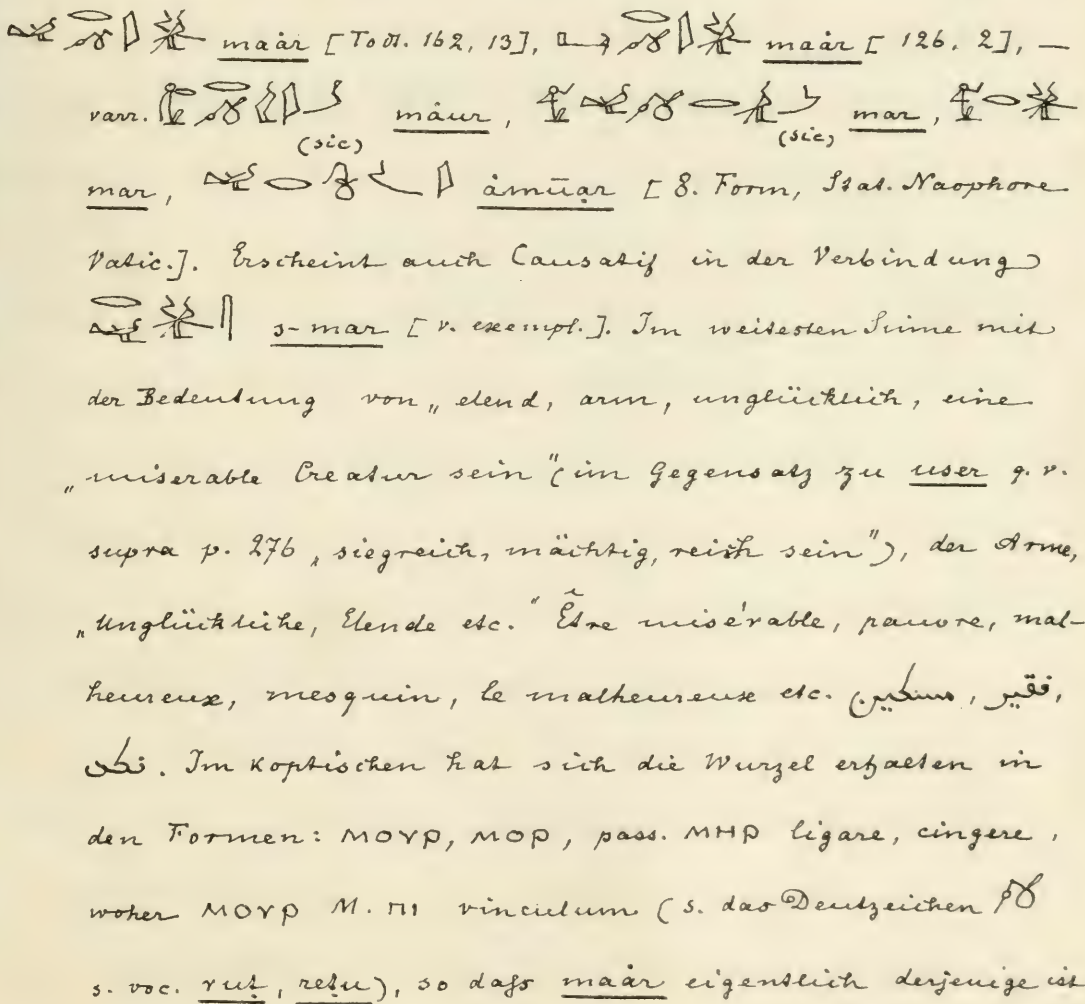 maȧr [Todt. 162, 13], maȧr [126. 2], —
varr. (sic) mȧur, (sic) mar,
mar, ȧmūạr [8. Form, Stat. Naophore
Vatic.]. Erscheint auch Causatif in der Verbindung
s-mar [v. exempl.]. Im weitesten Sinne mit
der Bedeutung von „elend, arm, unglücklich, eine
„miserable Creatur sein" (im Gegensatz zu user q. v.
supra p. 276 „siegreich, mächtig, reich sein"), der Arme,
„Unglückliche, Elende etc." Être misérable, pauvre, mal-
heureux, mesquin, le malheureux etc. فقير, مسكين,
. Im Koptischen hat sich die Wurzel erhalten in
den Formen: ⲙⲟⲩⲣ, ⲙⲟⲣ, pass. ⲙⲏⲣ ligare, cingere,
woher ⲙⲟⲩⲣ M. ⲡⲓ vinculum (s. das Deutzeichen
s. voc. ruṭ, reṭu), so daſs maȧr eigentlich derjenige ist